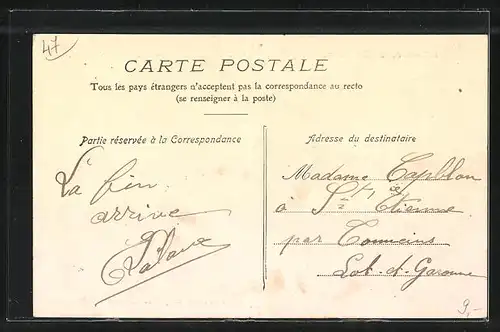 47
CARTE POSTALE
Tous les pays étrangers n'acceptent pas la correspondance au recto
(se renseigner à la poste)
Partie réservée à la Correspondance
La fin
arrive
Adresse du destinataire
Madame
à St Etienne
par Tonneins
Lot-et-Garonne
9,-